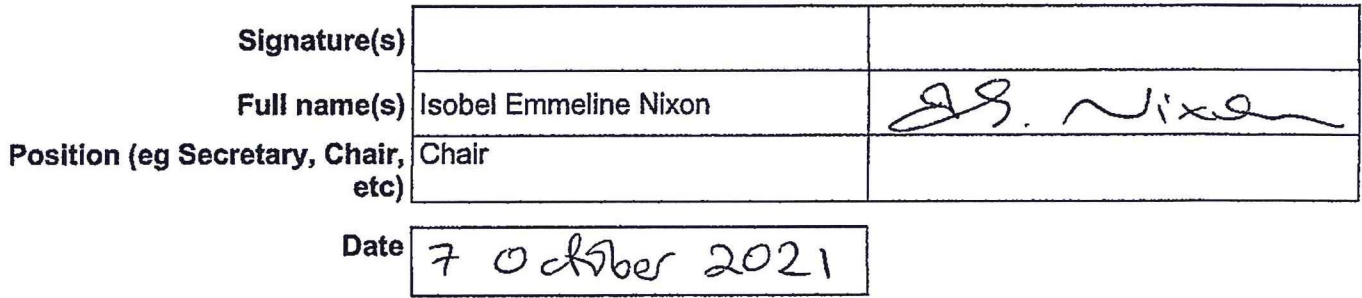 Signature(s)
Full name(s) Isobel Emmeline Nixon
Nixon
Position (eg Secretary, Chair, Chair
etc)
Date 7 October 2021